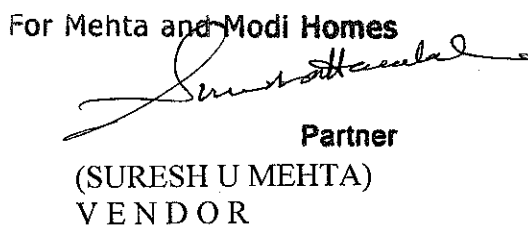 For Mehta and Modi Homes
Partner
(SURESH U MEHTA)
V E N D O R